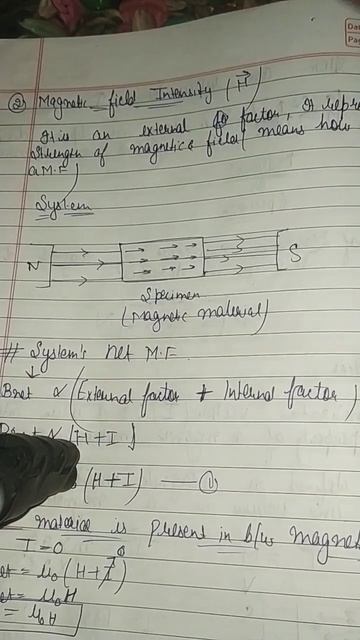 ② Magnetic field Intensity (H⃗)
It is an external factor, It repre
strength of magnetic field means how
a M.F
System
N S
Specimen
(Magnetic material)
# System's net M.F.
Bnet ∝ (External factor + Internal factor)
∝ (H+I)
(H+I) — ①
is present in b/w magnet
I = 0
et = μ₀ (H+I⁰)
et = μ₀H
= μ₀H